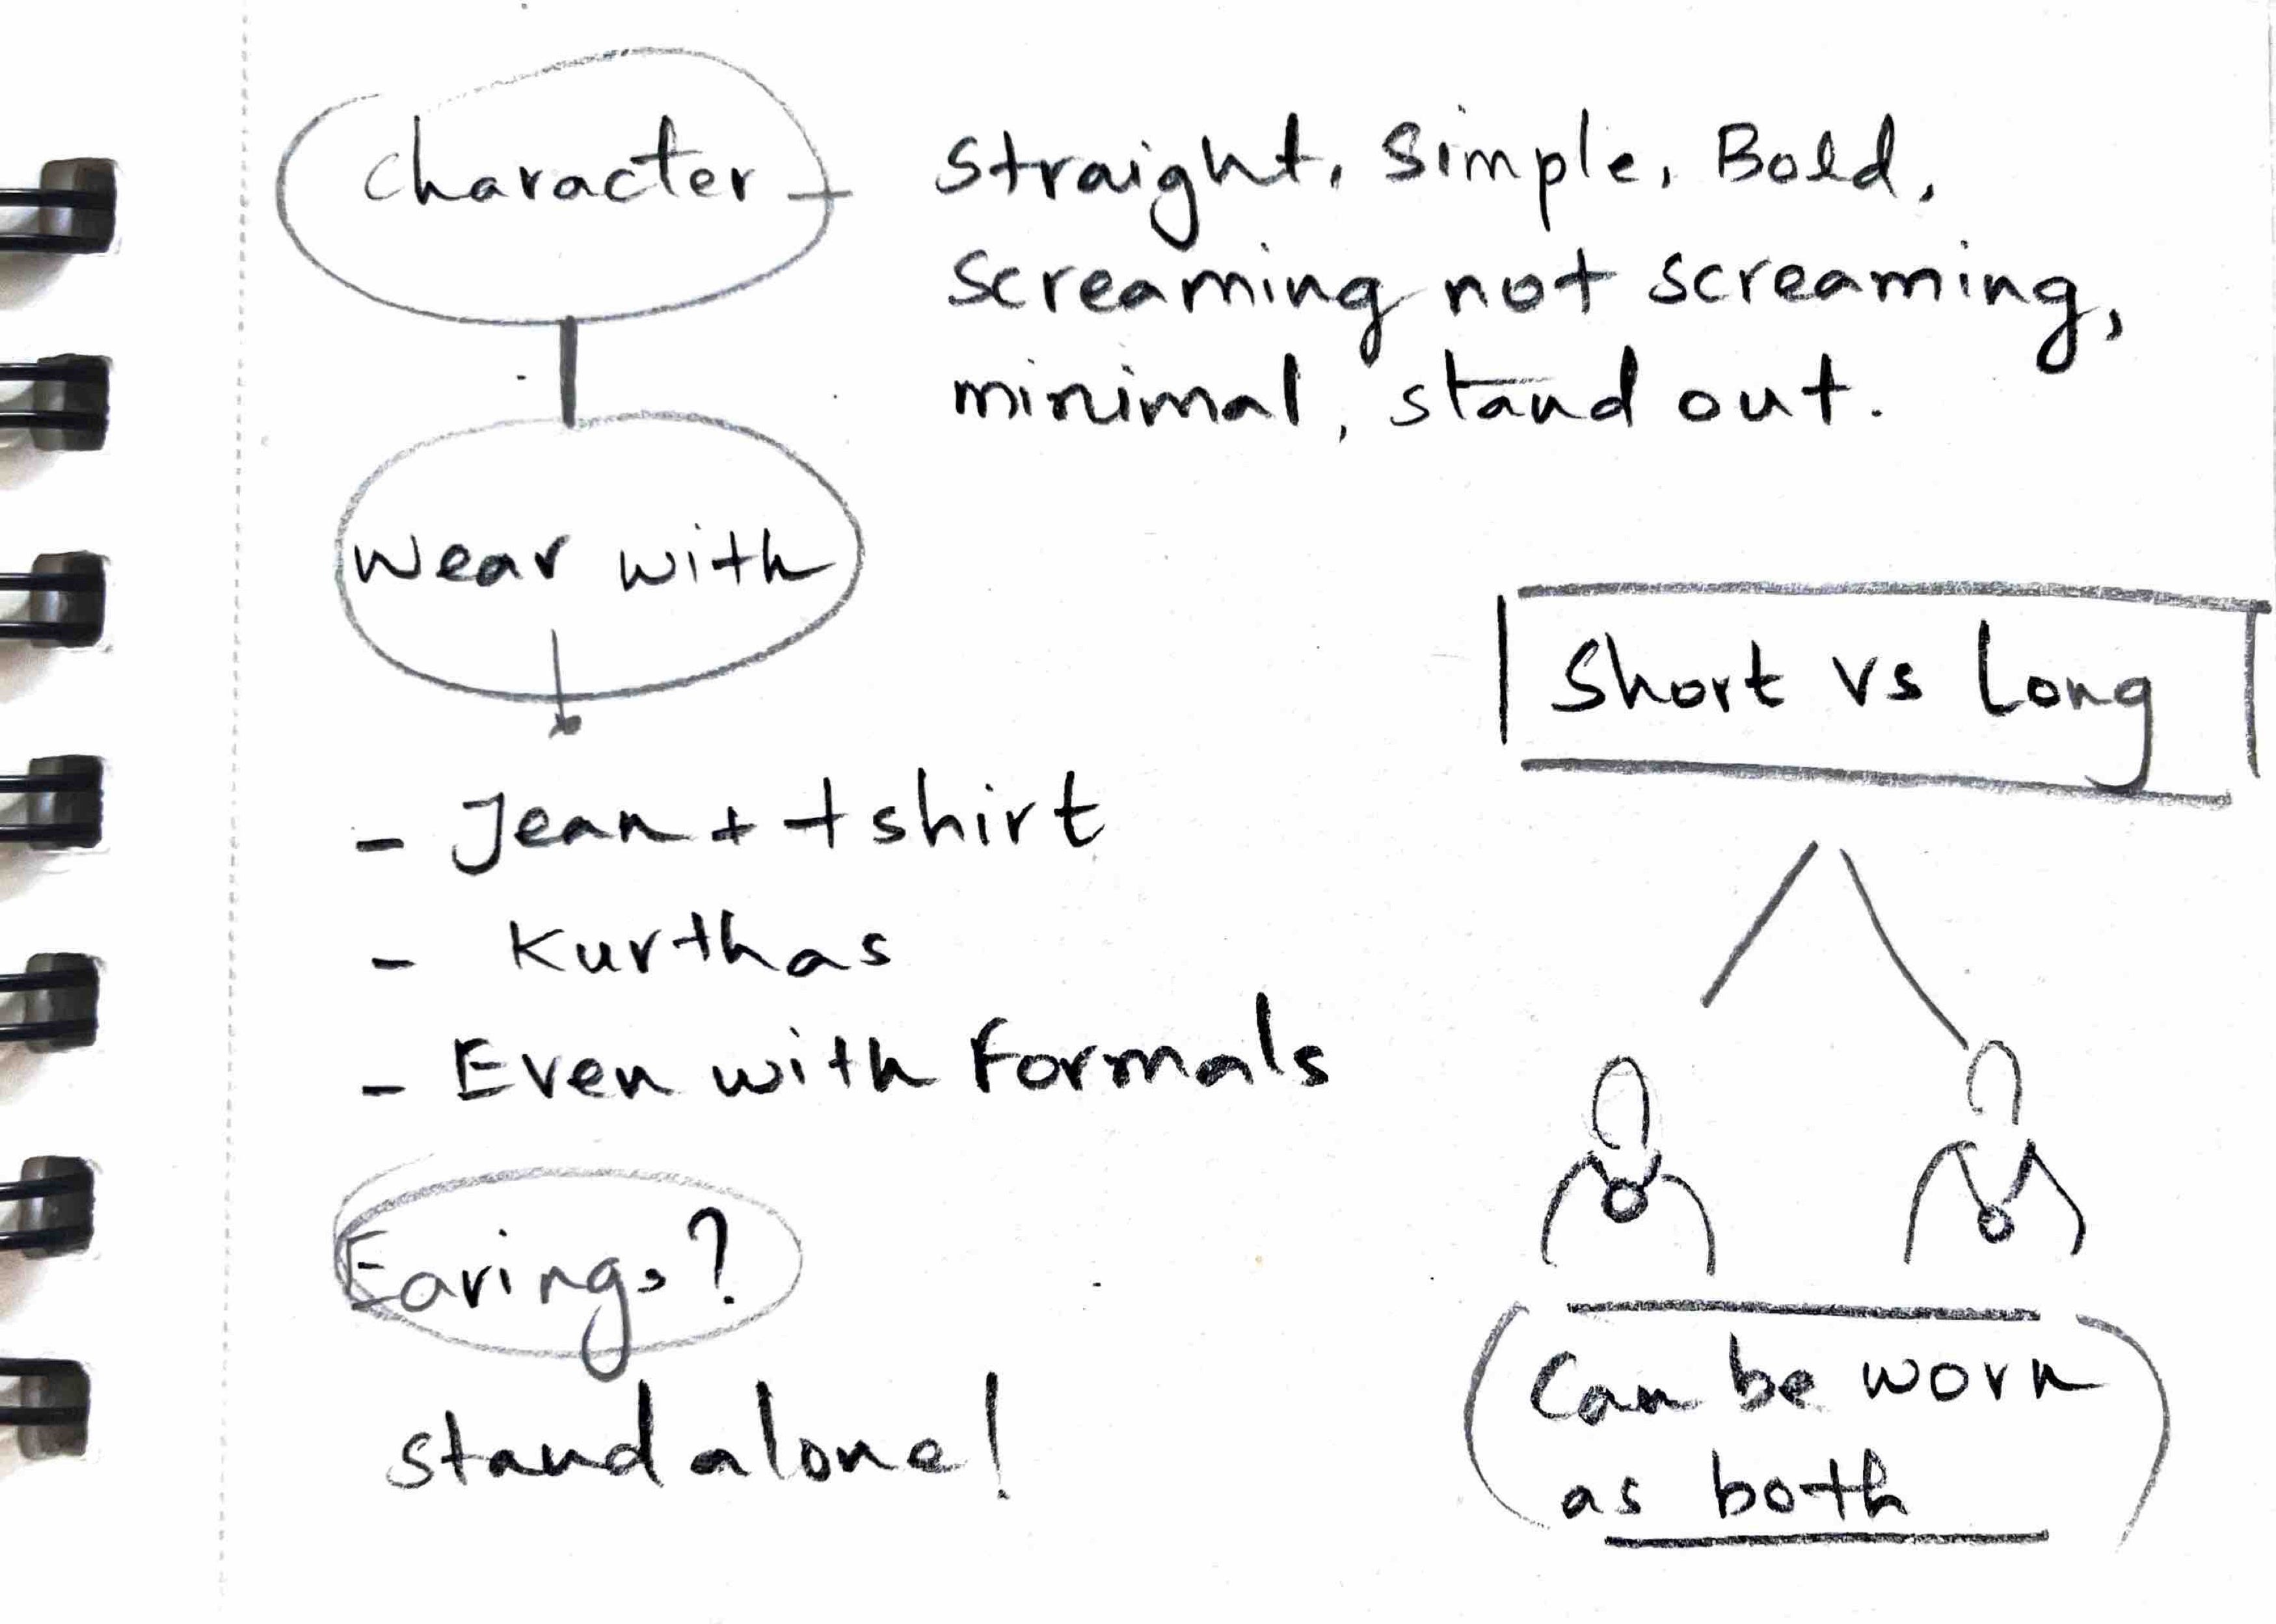 Character - Straight, Simple, Bold,
Screaming not screaming,
minimal, stand out.
Wear with
- Jean + tshirt
- Kurthas
- Even with formals
Earings?
standalone!
Short vs Long
(Can be worn
as both)